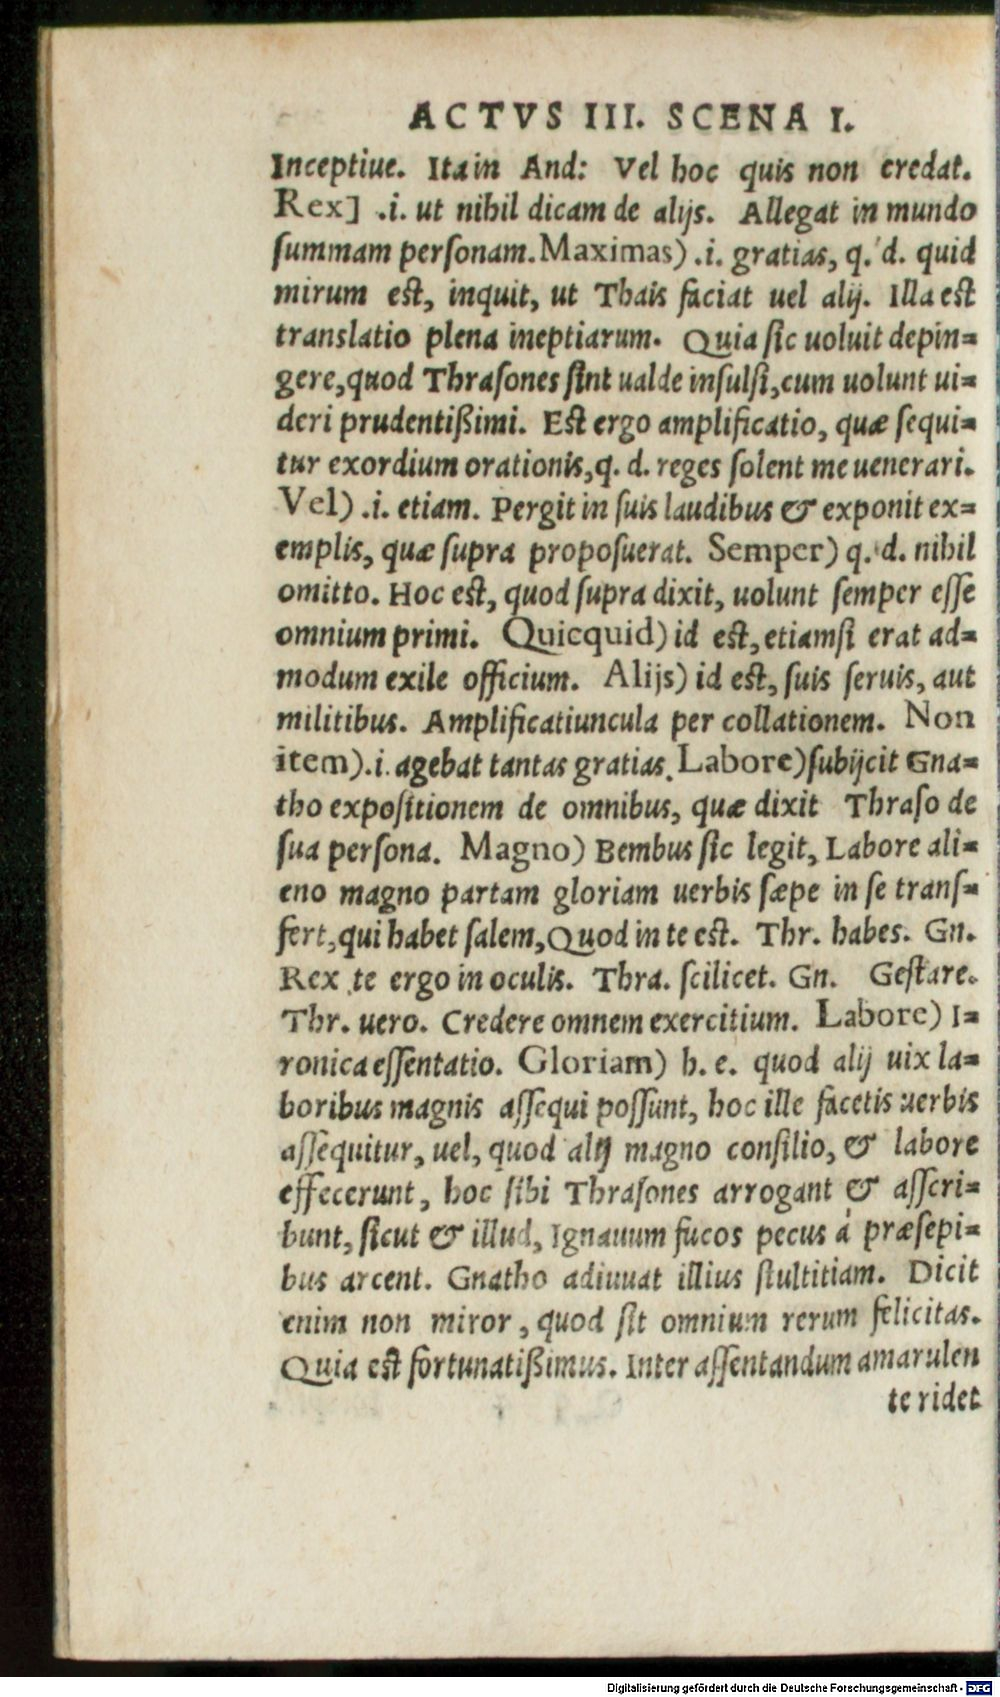 ACTVS III. SCENA I.
Inceptiue. Ita in And: Vel hoc quis non credat.
Rex] .i. ut nihil dicam de alijs. Allegat in mundo
ſummam perſonam. Maximas) .i. gratias, q. d. quid
mirum est, inquit, ut Thais faciat uel alij. Illa est
translatio plena ineptiarum. Quia ſic uoluit depin=
gere, quod Thraſones ſint ualde inſulſi, cum uolunt ui=
deri prudentißimi. Est ergo amplificatio, quæ ſequi=
tur exordium orationis, q. d. reges ſolent me uenerari.
Vel) .i. etiam. Pergit in ſuis laudibus & exponit ex=
emplis, quæ ſupra propoſuerat. Semper) q. d. nihil
omitto. Hoc est, quod ſupra dixit, uolunt ſemper eſſe
omnium primi. Quicquid) id est, etiamſi erat ad=
modum exile officium. Alijs) id est, ſuis ſeruis, aut
militibus. Amplificatiuncula per collationem. Non
item) .i. agebat tantas gratias. Labore) ſubijcit Gna=
tho expoſitionem de omnibus, quæ dixit Thraſo de
ſua perſona. Magno) Bembus ſic legit, Labore ali=
eno magno partam gloriam uerbis ſæpe in ſe transſ=
fert, qui habet ſalem, Quod in te est. Thr. habes. Gn.
Rex te ergo in oculis. Thra. ſcilicet. Gn. Geſtare.
Thr. uero. Credere omnem exercitium. Labore) I=
ronica eſſentatio. Gloriam) h. e. quod alij uix la=
boribus magnis aſſequi poſſunt, hoc ille facetis uerbis
aſſequitur, uel, quod alij magno conſilio, & labore
effecerunt, hoc ſibi Thraſones arrogant & aſſcri=
bunt, ſicut & illud, Ignauum fucos pecus á præſepi=
bus arcent. Gnatho adiuuat illius ſtultitiam. Dicit
enim non miror, quod ſit omnium rerum felicitas.
Quia est fortunatißimus. Inter aſſentandum amarulen
te ridet
Digitalisierung gefördert durch die Deutsche Forschungsgemeinschaft - DFG